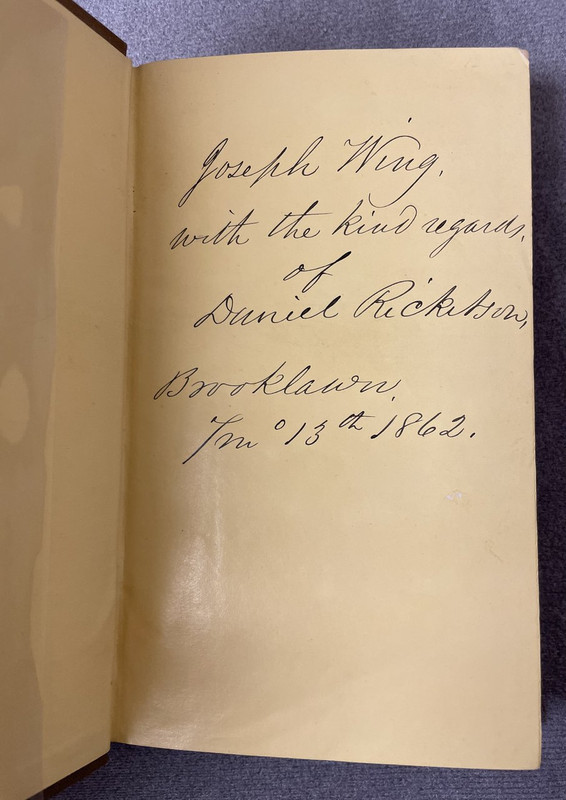 Joseph Wing.
with the kind regards,
of
Daniel Ricketson,
Brooklawn,
7mº 13th 1862.